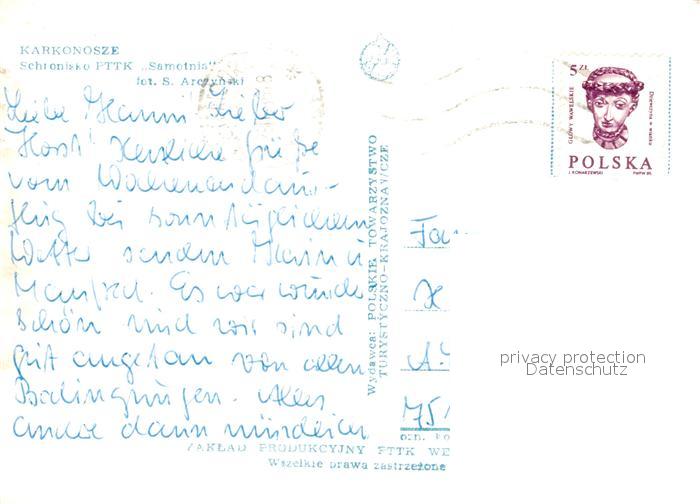 KARKONOSZE
Schronisko PTTK „Samotnia"
fot. S. Arczyński
Liebe Hanni Lieber
Horst Herzliche Grüße
vom Wochenendaus-
flug bei sonntäglichem
Wetter senden
Manfred. Es war wunder
schön und wir sind
gut angetan von allen
Bedingungen. Alles
andere dann mündlich
Wydawca: POLSKIE TOWARZYSTWO
TURYSTYCZNO-KRAJOZNAWCZE
5 ZŁ
GŁOWY WAWELSKIE
Dziewczyna w wianku
POLSKA
J. KONARZEWSKI PWPW 85
Fa
H
A.
75
ozn. ko
ZAKŁAD PRODUKCYJNY PTTK WE
Wszelkie prawa zastrzeżone
privacy protection
Datenschutz